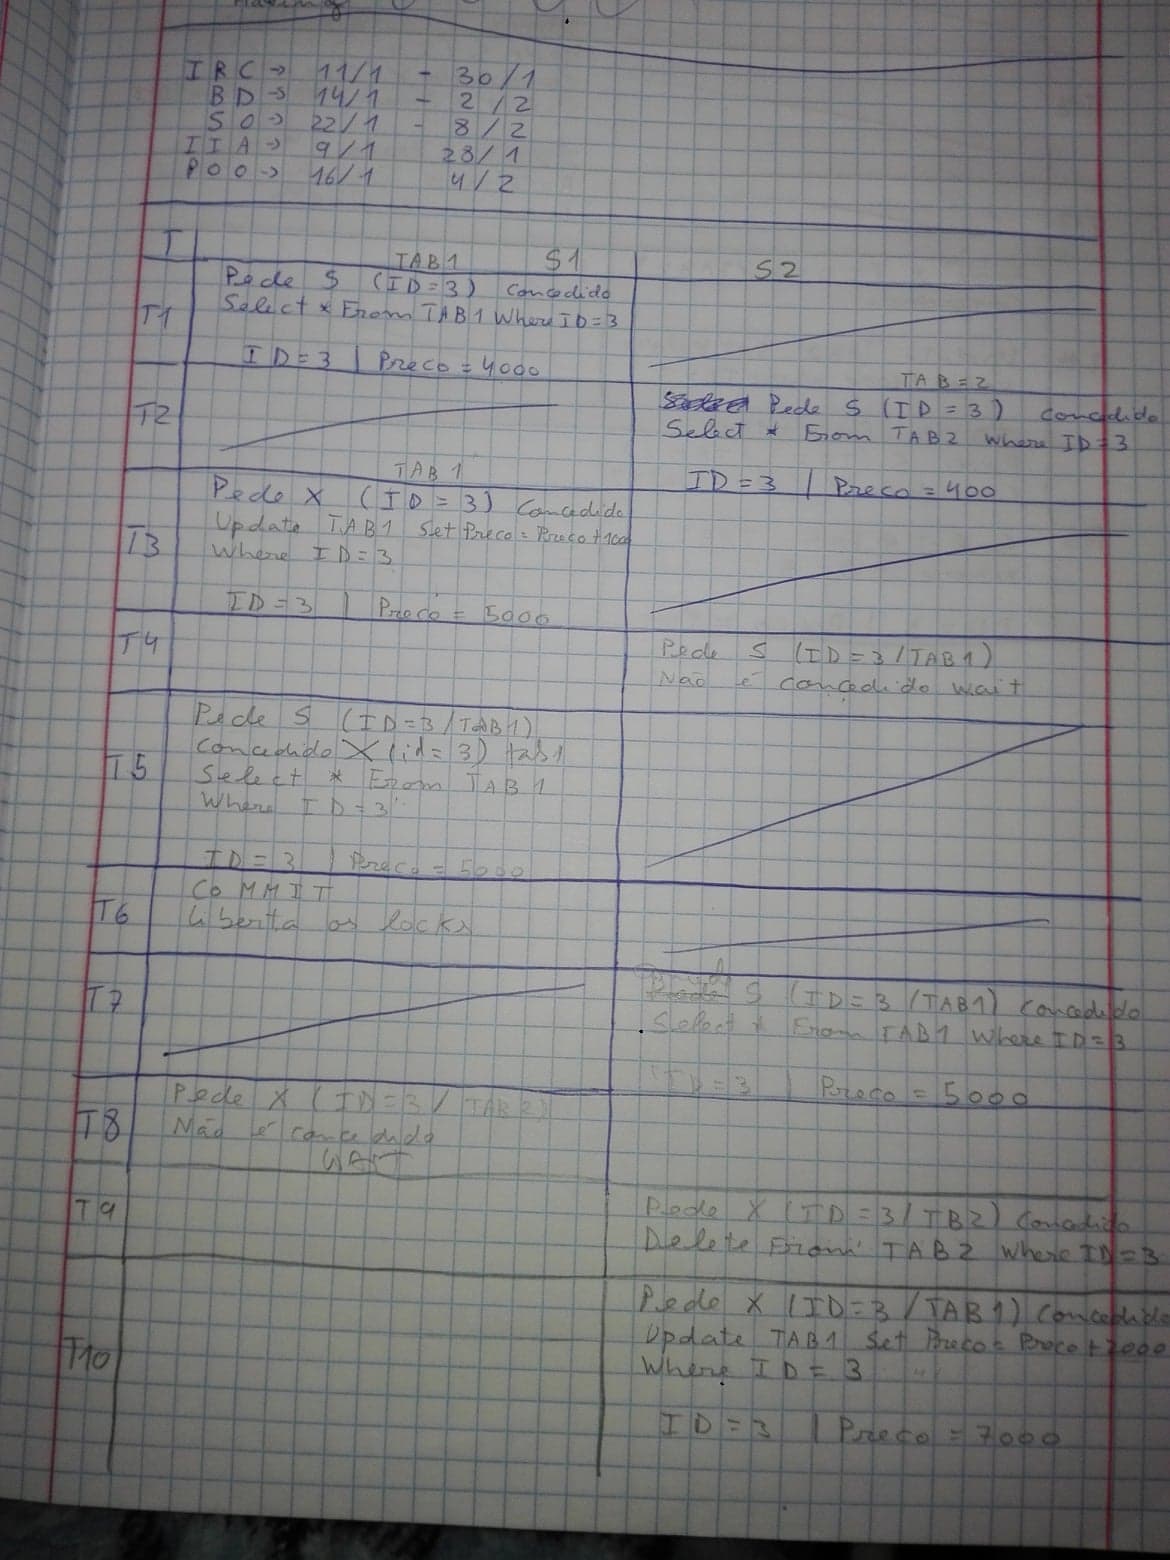 IRC → 11/1 - 30/1
BD → 14/1 - 2/2
SO → 22/1 - 8/2
IIA → 9/1 28/1
POO → 16/1 4/2
T
TAB1 S1
S2
T1
Pede S (ID=3) concedido
Select * From TAB1 Where ID=3
ID=3 | Preco = 4000
T2
TAB=2
Pede S (ID=3) concedido
Select * From TAB2 where ID=3
ID=3 | Preco = 400
T3
TAB1
Pede X (ID=3) concedido
Update TAB1 Set Preco = Preco +100
Where ID=3
ID=3 | Preco = 5000
T4
Pede S (ID=3/TAB1)
Não é concedido wait
T5
Pede S (ID=3/TAB1)
concedido X (id=3) tab1
Select * From TAB1
Where ID=3
ID=3 | Preco = 5000
T6
COMMIT
Liberta os locks
T7
S (ID=3/TAB1) concedido
Select * From TAB1 Where ID=3
ID=3 | Preco = 5000
T8
Pede X (ID=3/TAB2)
Não é concedido
WAIT
T9
Pede X (ID=3/TB2) concedido
Delete From TAB2 where ID=3
T10
Pede X (ID=3/TAB1) concedido
Update TAB1 Set Preco = Preco + 2000
Where ID=3
ID=3 | Preco = 7000